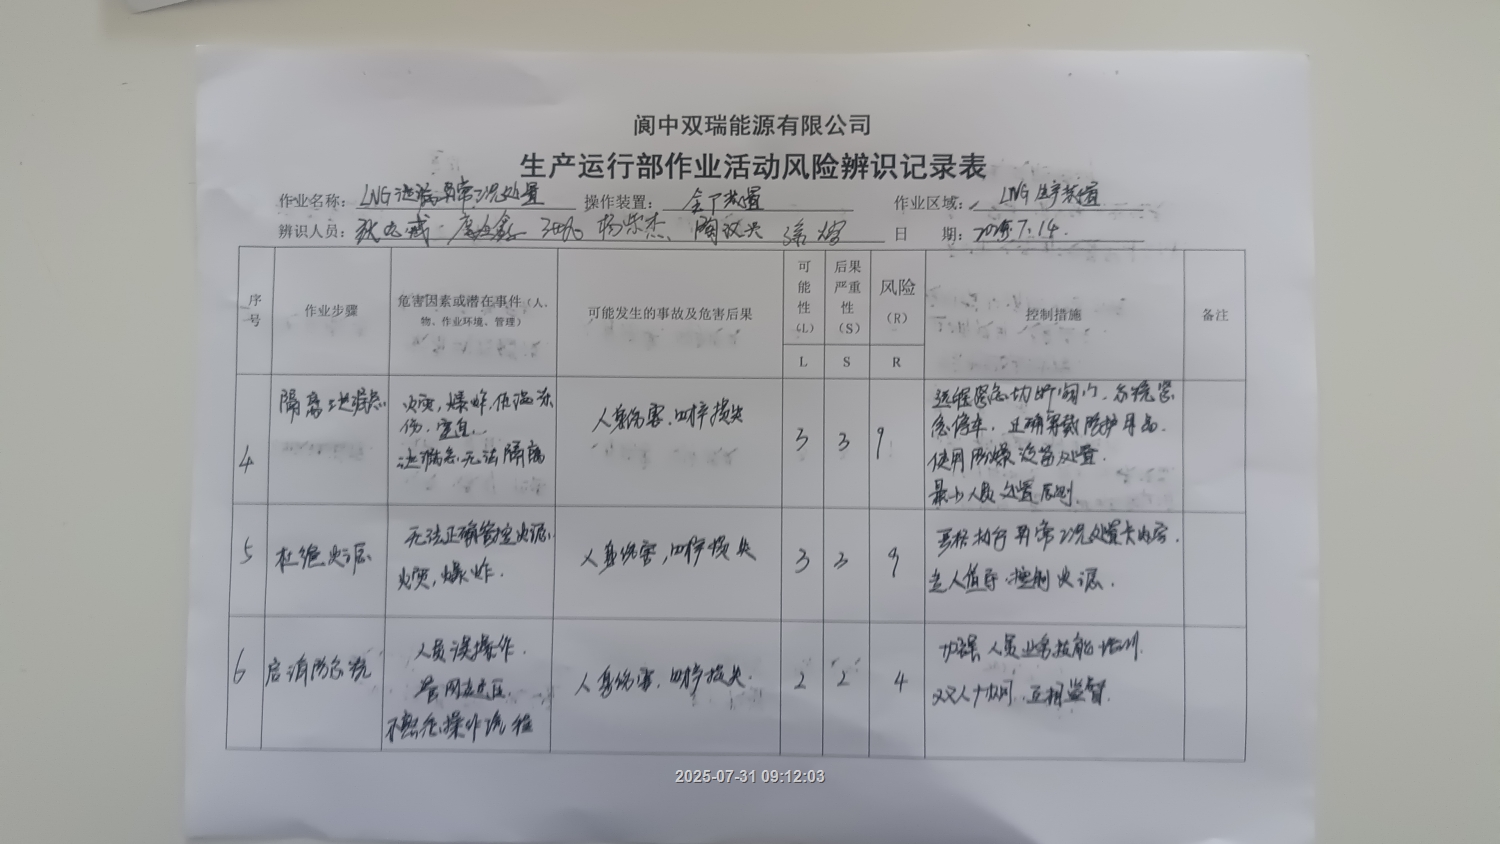 阆中双瑞能源有限公司
生产运行部作业活动风险辨识记录表
作业名称：LNG泄漏异常工况处置 操作装置：全厂装置 作业区域：LNG生产装置
辨识人员： 日期：2025.7.14.
序号 作业步骤 危害因素或潜在事件（人、物、作业环境、管理） 可能发生的事故及危害后果 可能性（L） 后果严重性（S） 风险（R） 控制措施 备注
L S R
4 隔离泄漏点 火灾，爆炸，低温冻伤，窒息，泄漏点无法隔离 人身伤害，财产损失 3 3 9 远程紧急切断阀门，系统紧急停车，正确穿戴防护用品，使用防爆设备处置，最少人员处置原则
5 杜绝火源 无法正确管控火源，火灾，爆炸. 人身伤害，财产损失 3 3 9 严格执行异常工况处置卡内容，专人值守，控制火源.
6 启消防系统 人员误操作. 管网未建压. 不熟悉操作流程 人身伤害，财产损失. 2 2 4 加强人员业务技能培训. 双人协同，互相监督.
2025-07-31 09:12:03